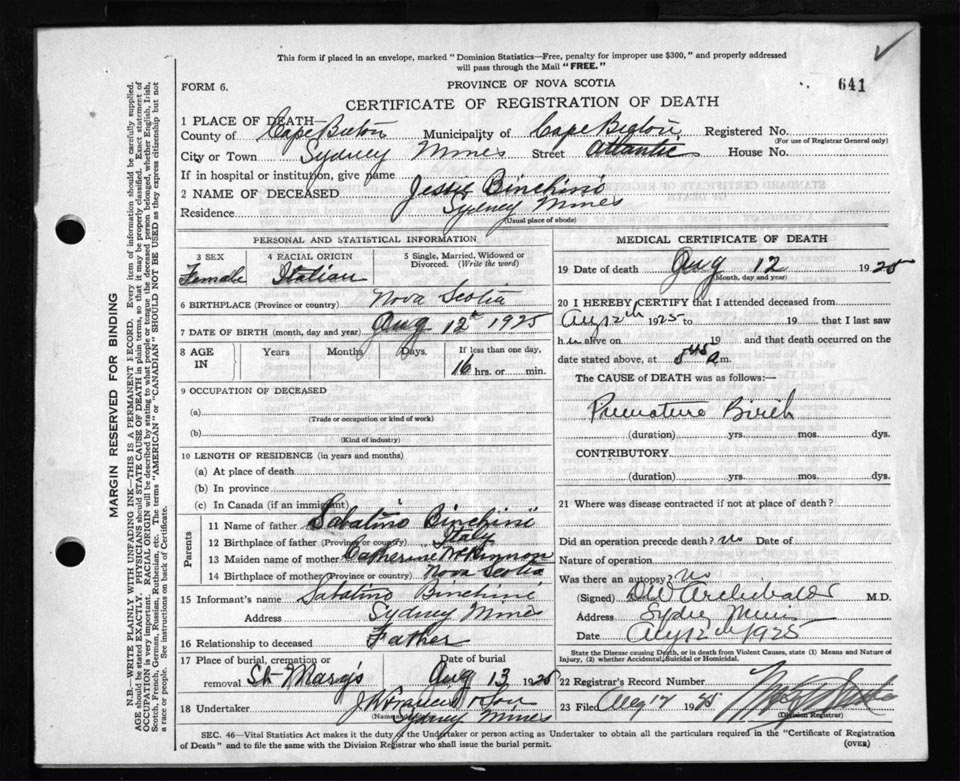 This form if placed in an envelope, marked "Dominion Statistics—Free, penalty for improper use $300," and properly addressed
will pass through the Mail "FREE."
FORM 6.
PROVINCE OF NOVA SCOTIA
641
CERTIFICATE OF REGISTRATION OF DEATH
1 PLACE OF DEATH—
County of Cape Breton Municipality of Cape Breton Registered No.
(For use of Registrar General only)
City or Town Sydney Mines Street Atlantic House No.
If in hospital or institution, give name
2 NAME OF DECEASED Jessie Binchini
Residence Sydney Mines
(Usual place of abode)
PERSONAL AND STATISTICAL INFORMATION
3 SEX 4 RACIAL ORIGIN 5 Single, Married, Widowed or
Divorced. (Write the word)
Female Italian
6 BIRTHPLACE (Province or country) Nova Scotia
7 DATE OF BIRTH (month, day and year) Aug 12th 1925
8 AGE IN Years Months Days. If less than one day,
16 hrs. or min.
9 OCCUPATION OF DECEASED
(a)
(Trade or occupation or kind of work)
(b)
(Kind of industry)
10 LENGTH OF RESIDENCE (in years and months)
(a) At place of death
(b) In province
(c) In Canada (if an immigrant)
Parents
11 Name of father Sabatino Binchini
12 Birthplace of father (Province or country) Italy
13 Maiden name of mother Catherine McKinnon
14 Birthplace of mother (Province or country) Nova Scotia
15 Informant's name Sabatino Binchini
Address Sydney Mines
16 Relationship to deceased Father
17 Place of burial, cremation or Date of burial
removal St Mary's Aug 13 1925
18 Undertaker J H Francis & Son
(Name and
Sydney Mines
MEDICAL CERTIFICATE OF DEATH
19 Date of death Aug 12 1925
(Month, day and year)
20 I HEREBY CERTIFY that I attended deceased from
Aug 12th 1925 to 19 that I last saw
h alive on 19 and that death occurred on the
date stated above, at 5 45 a m.
The CAUSE OF DEATH was as follows:—
Premature Birth
(duration) yrs. mos. dys.
CONTRIBUTORY.
(duration) yrs. mos. dys.
21 Where was disease contracted if not at place of death?
Did an operation precede death? no Date of
Nature of operation
Was there an autopsy? No
(Signed) Archibald M.D.
Address Sydney Mines
Date Aug 12th 1925
State the Disease causing Death, or in death from Violent Causes, state (1) Means and Nature of
Injury, (2) whether Accidental, Suicidal or Homicidal.
22 Registrar's Record Number
23 Filed Aug 17 1925
(Division Registrar)
SEC. 46—Vital Statistics Act makes it the duty of the Undertaker or person acting as Undertaker to obtain all the particulars required in the "Certificate of Registration
of Death" and to file the same with the Division Registrar who shall issue the burial permit.
(OVER)
MARGIN RESERVED FOR BINDING
N.B.—WRITE PLAINLY WITH UNFADING INK—THIS IS A PERMANENT RECORD. Every item of information should be carefully supplied.
AGE should be stated EXACTLY. PHYSICIANS should STATE CAUSE OF DEATH in plain terms, so that it may be properly classified. Exact statement of
OCCUPATION is very important. RACIAL ORIGIN will be described by stating to what people or tongue the deceased person belonged, whether English, Irish,
Scotch, French, German, Russian, Ruthenian, etc. The terms "AMERICAN" or "CANADIAN" SHOULD NOT BE USED as they express citizenship but not
a race or people. See instructions on back of Certificate.